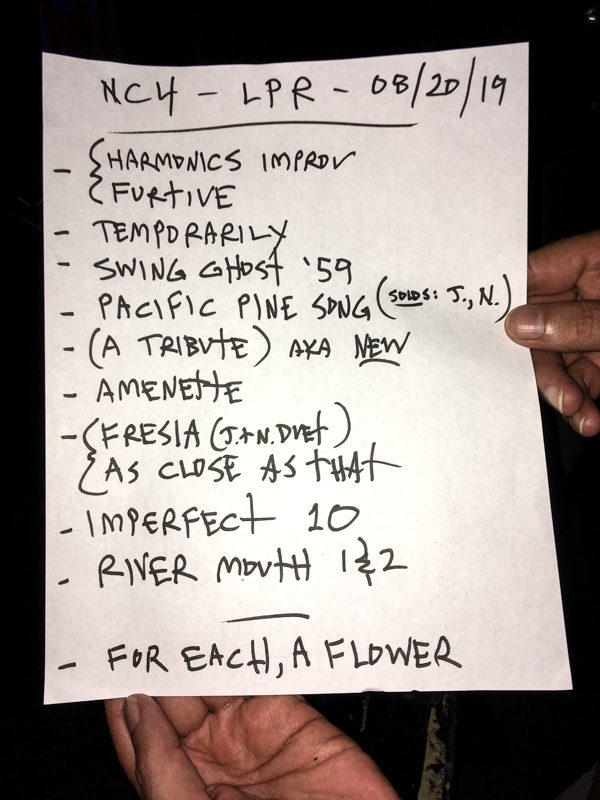 NC4 - LPR - 08/20/19
- { HARMONICS IMPROV
{ FURTIVE
- TEMPORARILY
- SWING GHOST '59
- PACIFIC PINE SONG (SOLOS: J., N.)
- (A TRIBUTE) AKA NEW
- AMENETTE
- { FRESIA (J.+N. DUET)
{ AS CLOSE AS THAT
- IMPERFECT 10
- RIVER MOUTH 1&2
- FOR EACH, A FLOWER